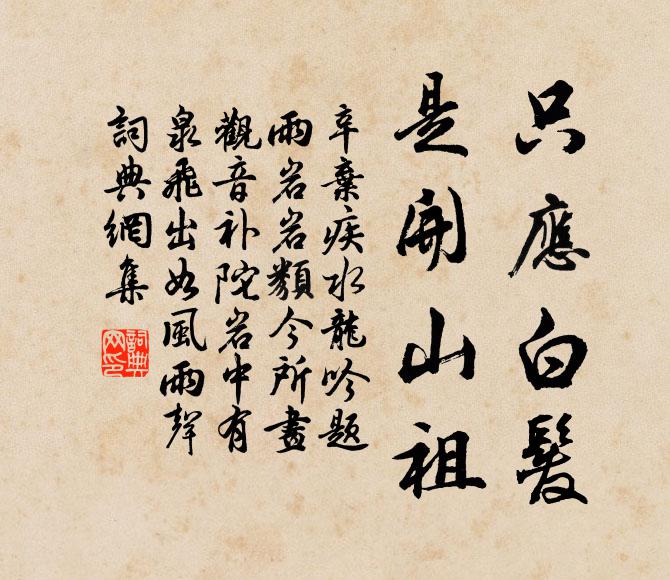 只應白髮
是開山祖
辛棄疾水龍吟題
雨岩岩類今所畫
觀音补陀岩中有
泉飛出如風雨聲
詞典網集
詞典網印